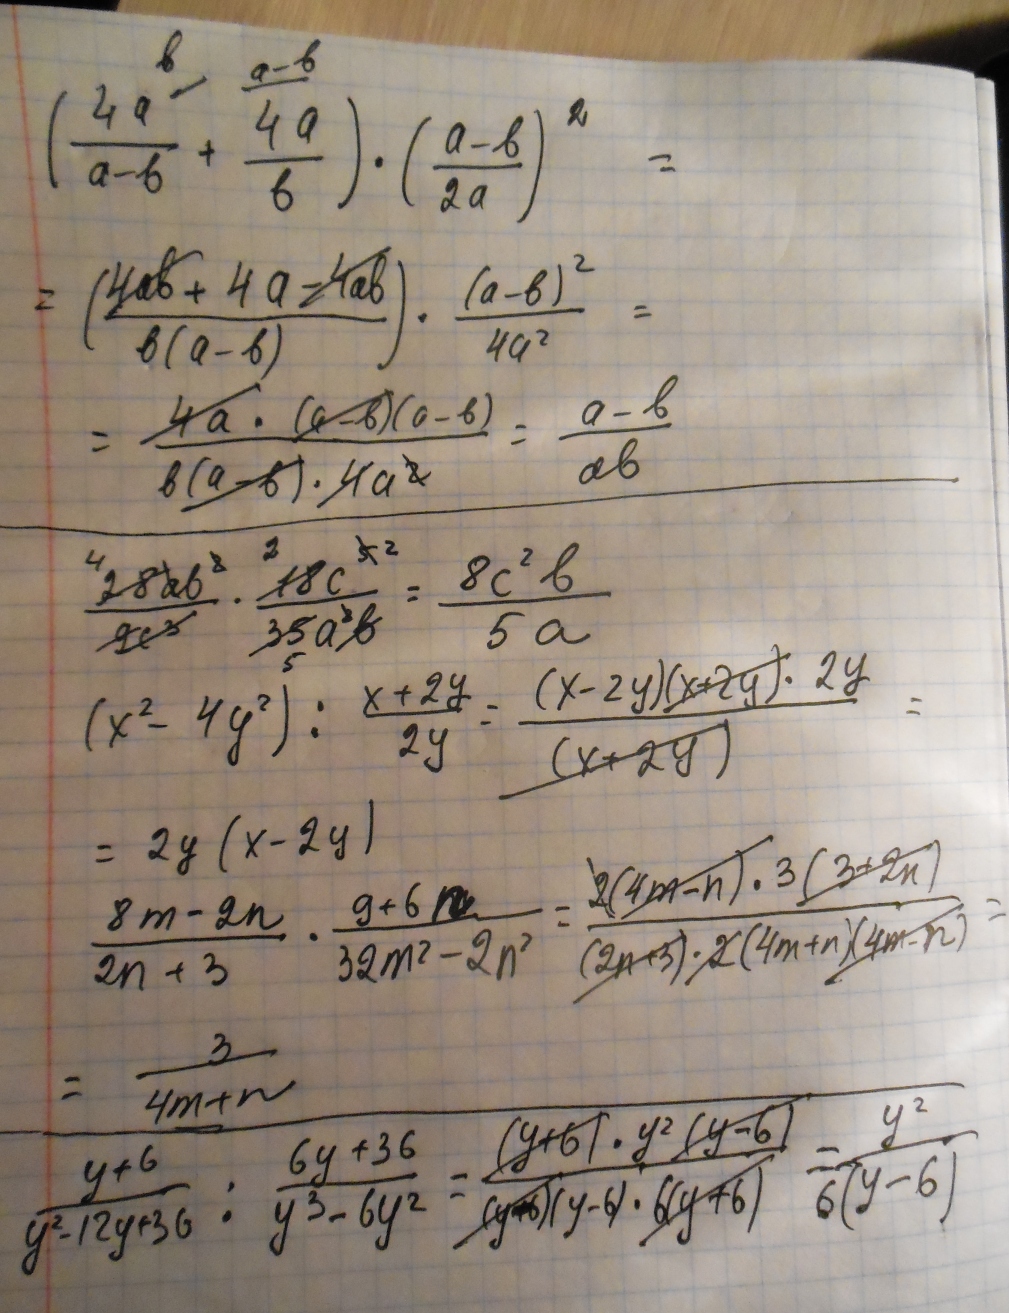 (4a^b/(a-b) + 4a^(a-b)/b) · ((a-b)/2a)² =
= ((4ab + 4a - 4ab)/b(a-b)) · (a-b)²/4a² =
= 4a · (a-b)(a-b)/b(a-b) · 4a² = (a-b)/ab
4 28ab²/9c³ · 2 18c⁵ ²/35a²b 5 = 8c²b/5a
(x² - 4y²) : (x+2y)/2y = (x-2y)(x+2y) · 2y/(x+2y) =
= 2y(x-2y)
(8m-2n)/(2n+3) · (9+6n)/(32m²-2n²) = 2(4m-n) · 3(3+2n)/(2n+3) · 2(4m+n)(4m-n) =
= 3/(4m+n)
(y+6)/(y²-12y+36) : (6y+36)/(y³-6y²) = (y+6) · y²(y-6)/(y+6)(y-6) · 6(y+6) = y²/6(y-6)